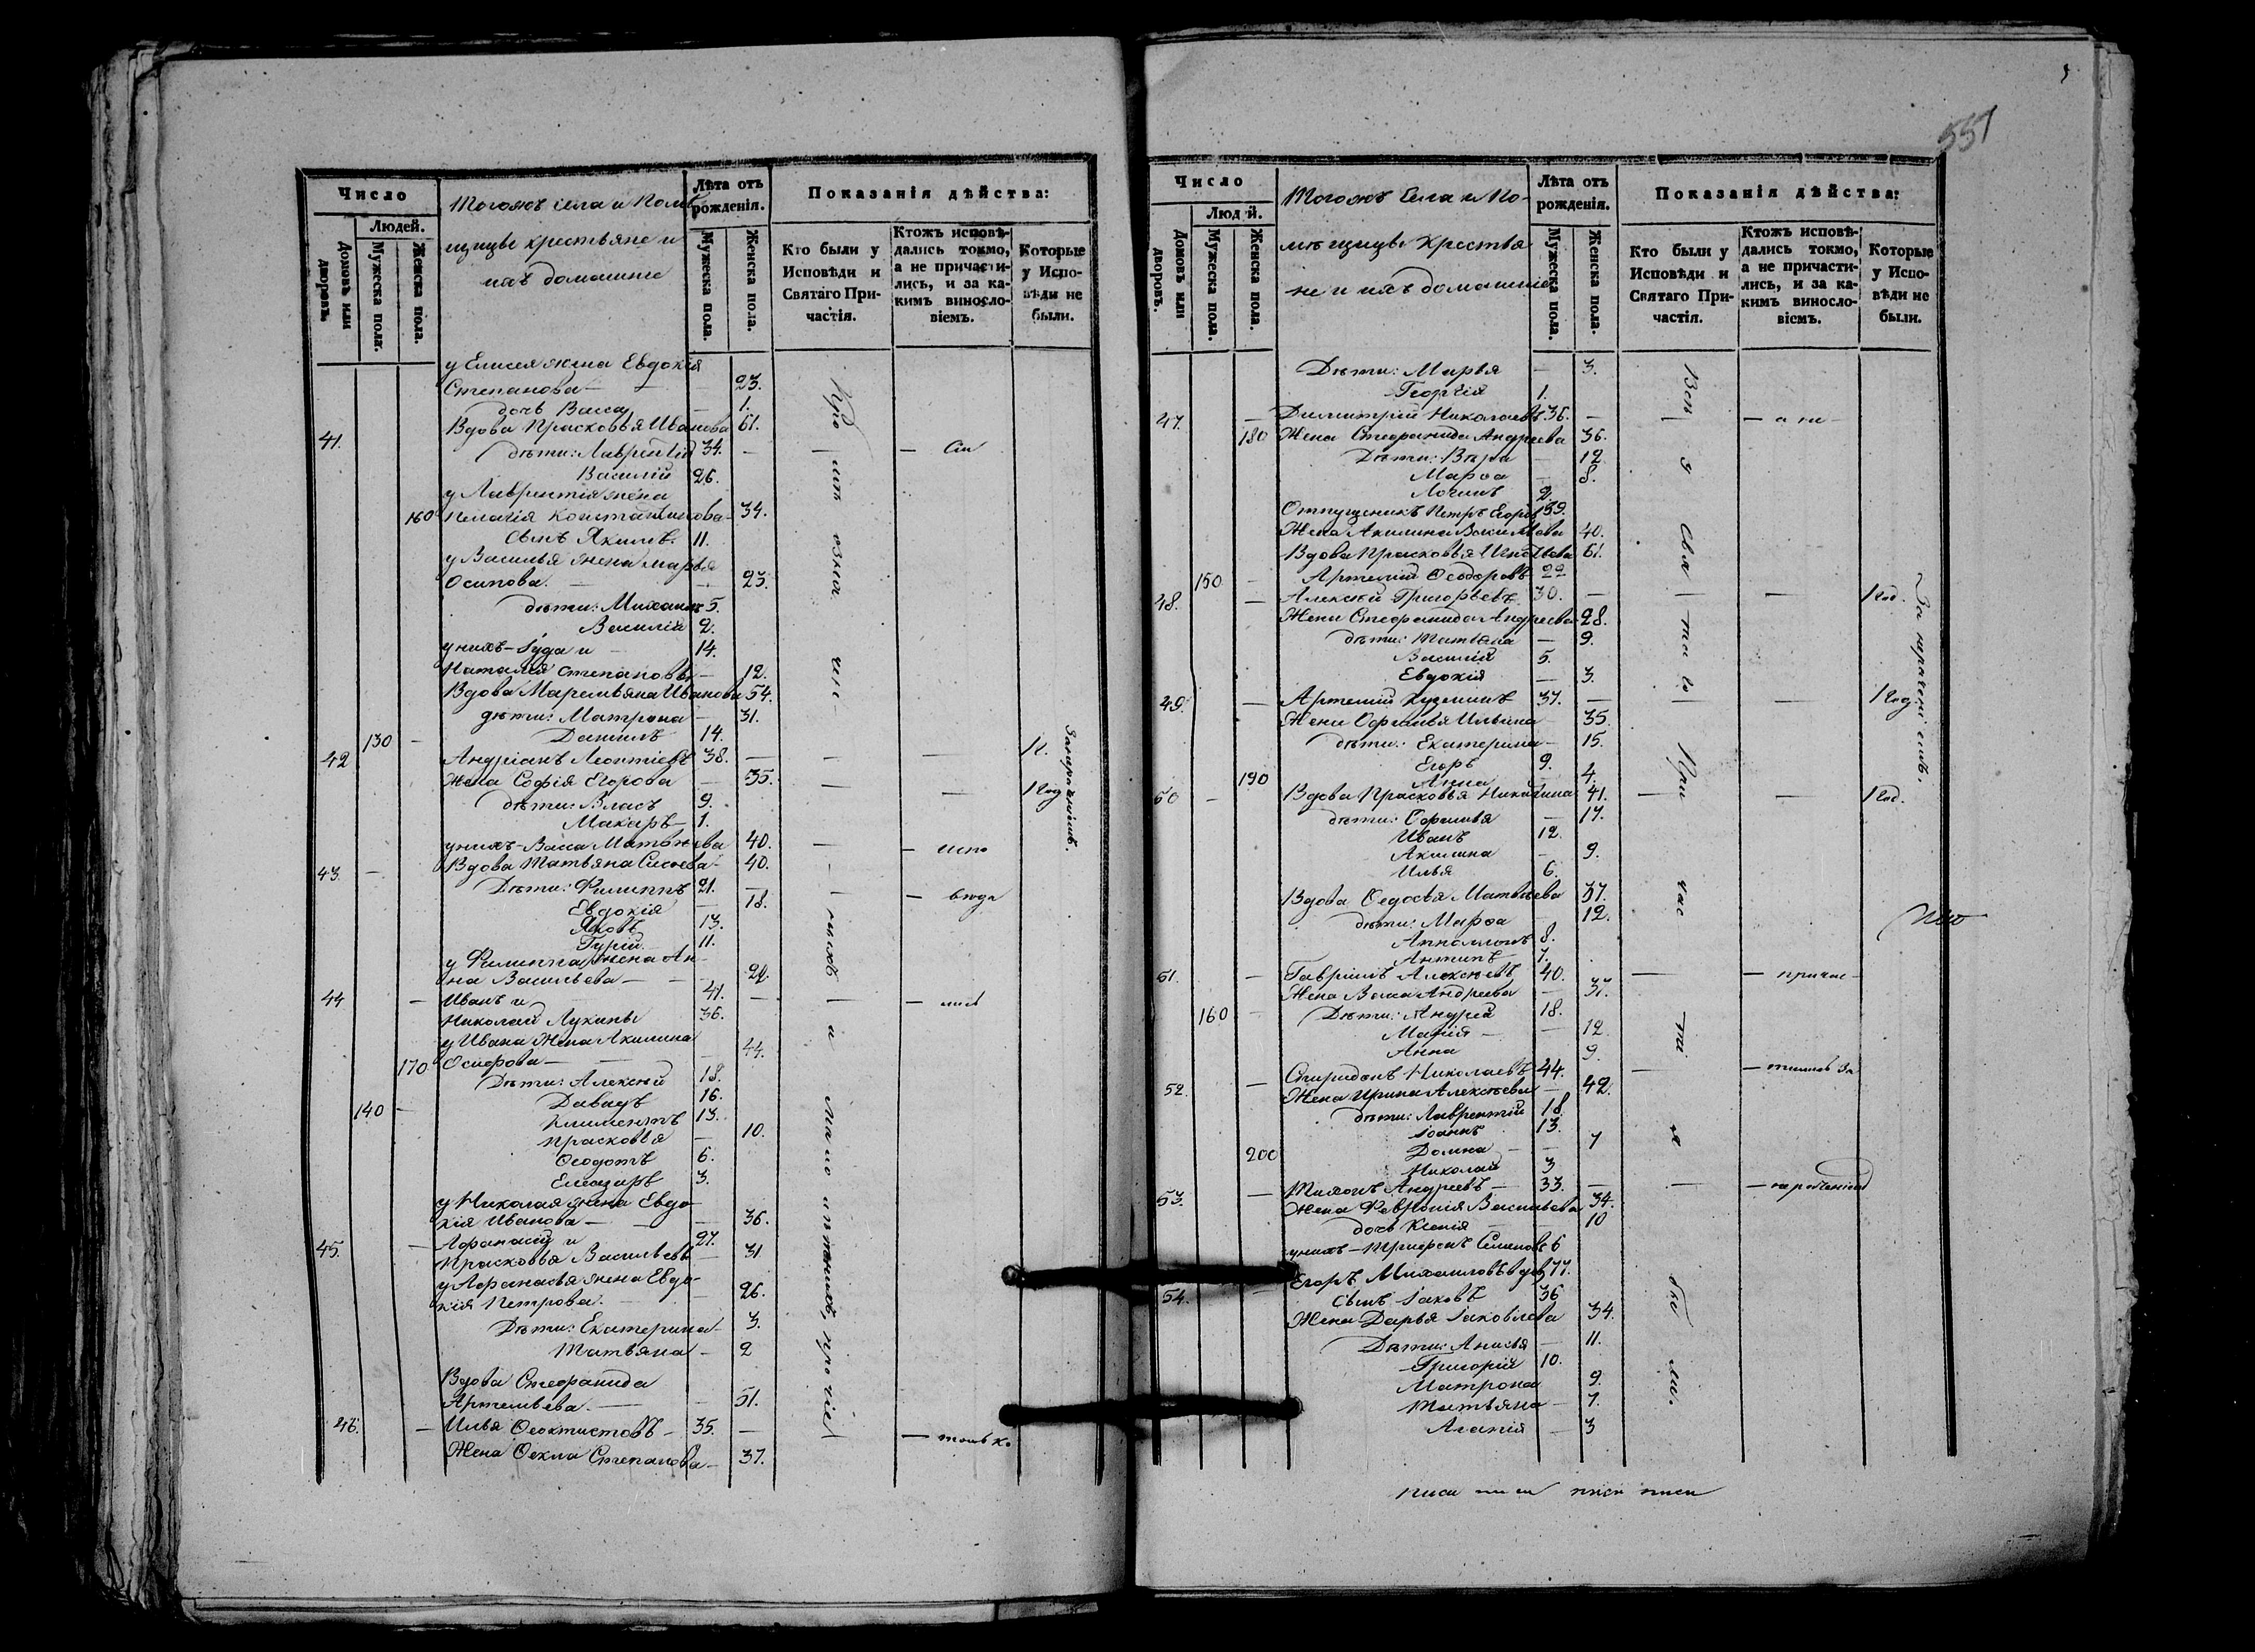 551
Число
Тогожъ села и Помѣ-
Лѣта отъ рожденія.
Показанія дѣйства:
Людей.
щицы крестьяне и
ихъ домашніе
Домовъ или дворовъ.
Мужеска пола.
Женска пола.
Мужеска пола.
Женска пола.
Кто были у Исповѣди и Святаго Причастія.
Ктожъ исповѣ-
дались токмо,
а не причасти-
лись, и за ка-
кимъ винословіемъ.
Которые у Исповѣди не были.
у Елисея жена Евдокія
Степанова — 23.
дочь Васса — 1.
41. Вдова Прасковья Иванова 61.
дѣти: Лаврентій 34. —
Василій 26.
у Лаврентія жена
160 Пелагія Константинова — 34.
сынъ Якимъ 11.
у Василья жена Марья
Осипова. — 23.
дѣти: Михаилъ 5.
Василій 2.
у нихъ — Іуда и 14.
Наталія Степановы — 12.
Вдова Маремьяна Иванова 54.
дѣти: Матрона — 31.
130 — Даніилъ 14.
42 Андріанъ Леонтіевъ 38. —
Жена Софія Егорова — 35.
дѣти: Власъ 9.
Макаръ — 1.
у нихъ — Васса Матвѣева 40.
43. — Вдова Татьяна Сысоева — 40.
Дѣти: Филиппъ 21. —
Евдокія — 18.
Яковъ 13.
Гурій 11.
у Филиппа жена Ан-
на Васильева — 20.
44 — Иванъ и 41. —
Николай Лукины 36.
у Ивана жена Акилина
170 Осифова — 44.
Дѣти: Алексѣй 18.
Давидъ 16.
140 — Климентъ 13.
Прасковья — 10.
Ѳеодотъ 6.
Елизаръ 3.
у Николая жена Евдо-
кія Иванова — 36.
45. — Афанасій и 27.
Прасковья Васильевы — 31
у Афанасья жена Евдо-
кія Петрова. — 26.
Дѣти: Екатерина — 3.
Татьяна — 2
Вдова Стефанида
Артемьева. — 51.
46. — Илья Ѳеоктистовъ — 35. —
Жена Ѳекла Степанова — 37.
— только
Число
Тогожъ Села и По-
Лѣта отъ рожденія.
Показанія дѣйства:
Людей.
мѣщицы Крестья
не и ихъ домашніе
Домовъ или дворовъ.
Мужеска пола.
Женска пола.
Мужеска пола.
Женска пола.
Кто были у Исповѣди и Святаго Причастія.
Ктожъ исповѣ-
дались токмо,
а не причасти-
лись, и за ка-
кимъ винословіемъ.
Которые у Исповѣди не были.
Дѣти: Марья — 3.
Георгій 1.
47. — Димитрій Николаевъ 36. — — а не —
180 Жена Стефанида Андреева 36.
Дѣти: Вѣра — 12
Марѳа — 8.
Логинъ 2.
Отпущеникъ Петръ Егоровъ 39.
Жена Акилина 40.
Вдова Прасковья 61.
150 — Артемій Ѳедоровъ 22
48. — Алексѣй Григорьевъ 30. — — 1 год.
Жена Стефанида Андреева 28.
дѣти: Татьяна — 9.
Василій 5.
Евдокія — 3.
49. — Артемій Кузминъ 37. — — 1 год.
Жена Софья Ильина 35.
дѣти: Екатерина — 15.
Егоръ 9.
190 Анна — 4.
50 — Вдова Прасковья Никитина 41. — — 1 год.
дѣти: Соломія — 17.
Иванъ 12.
Акилина — 9.
Илья 6.
Вдова Ѳедосья Матвѣева 37.
дѣти: Марѳа 12.
Апполлонъ 8.
Антипъ 7.
51. — Гавріилъ Алексѣевъ 40. — — причас —
Жена Васса Андреева — 37.
160 — Дѣти: Андрей 18.
Марія — 12
Анна 9.
52. — Спиридонъ Николаевъ 44. —
Жена Ирина Алексѣева — 42.
дѣти: Лаврентій 18.
Іоаннъ 13.
200 Домна — 7
Николай 3
53. — Тихонъ Андреевъ — 33. — —
Жена Февронія Васильева 34.
дочь Ксенія — 10
у нихъ — Трифонъ Семеновъ 6
Егоръ Михаиловъ вдов 77.
54. — Сынъ Іаковъ 36
Жена Дарья Іаковлева 34.
Дѣти: Анисья — 11.
Григорій 10.
Матрона 9.
Татьяна — 7.
Агапія — 3